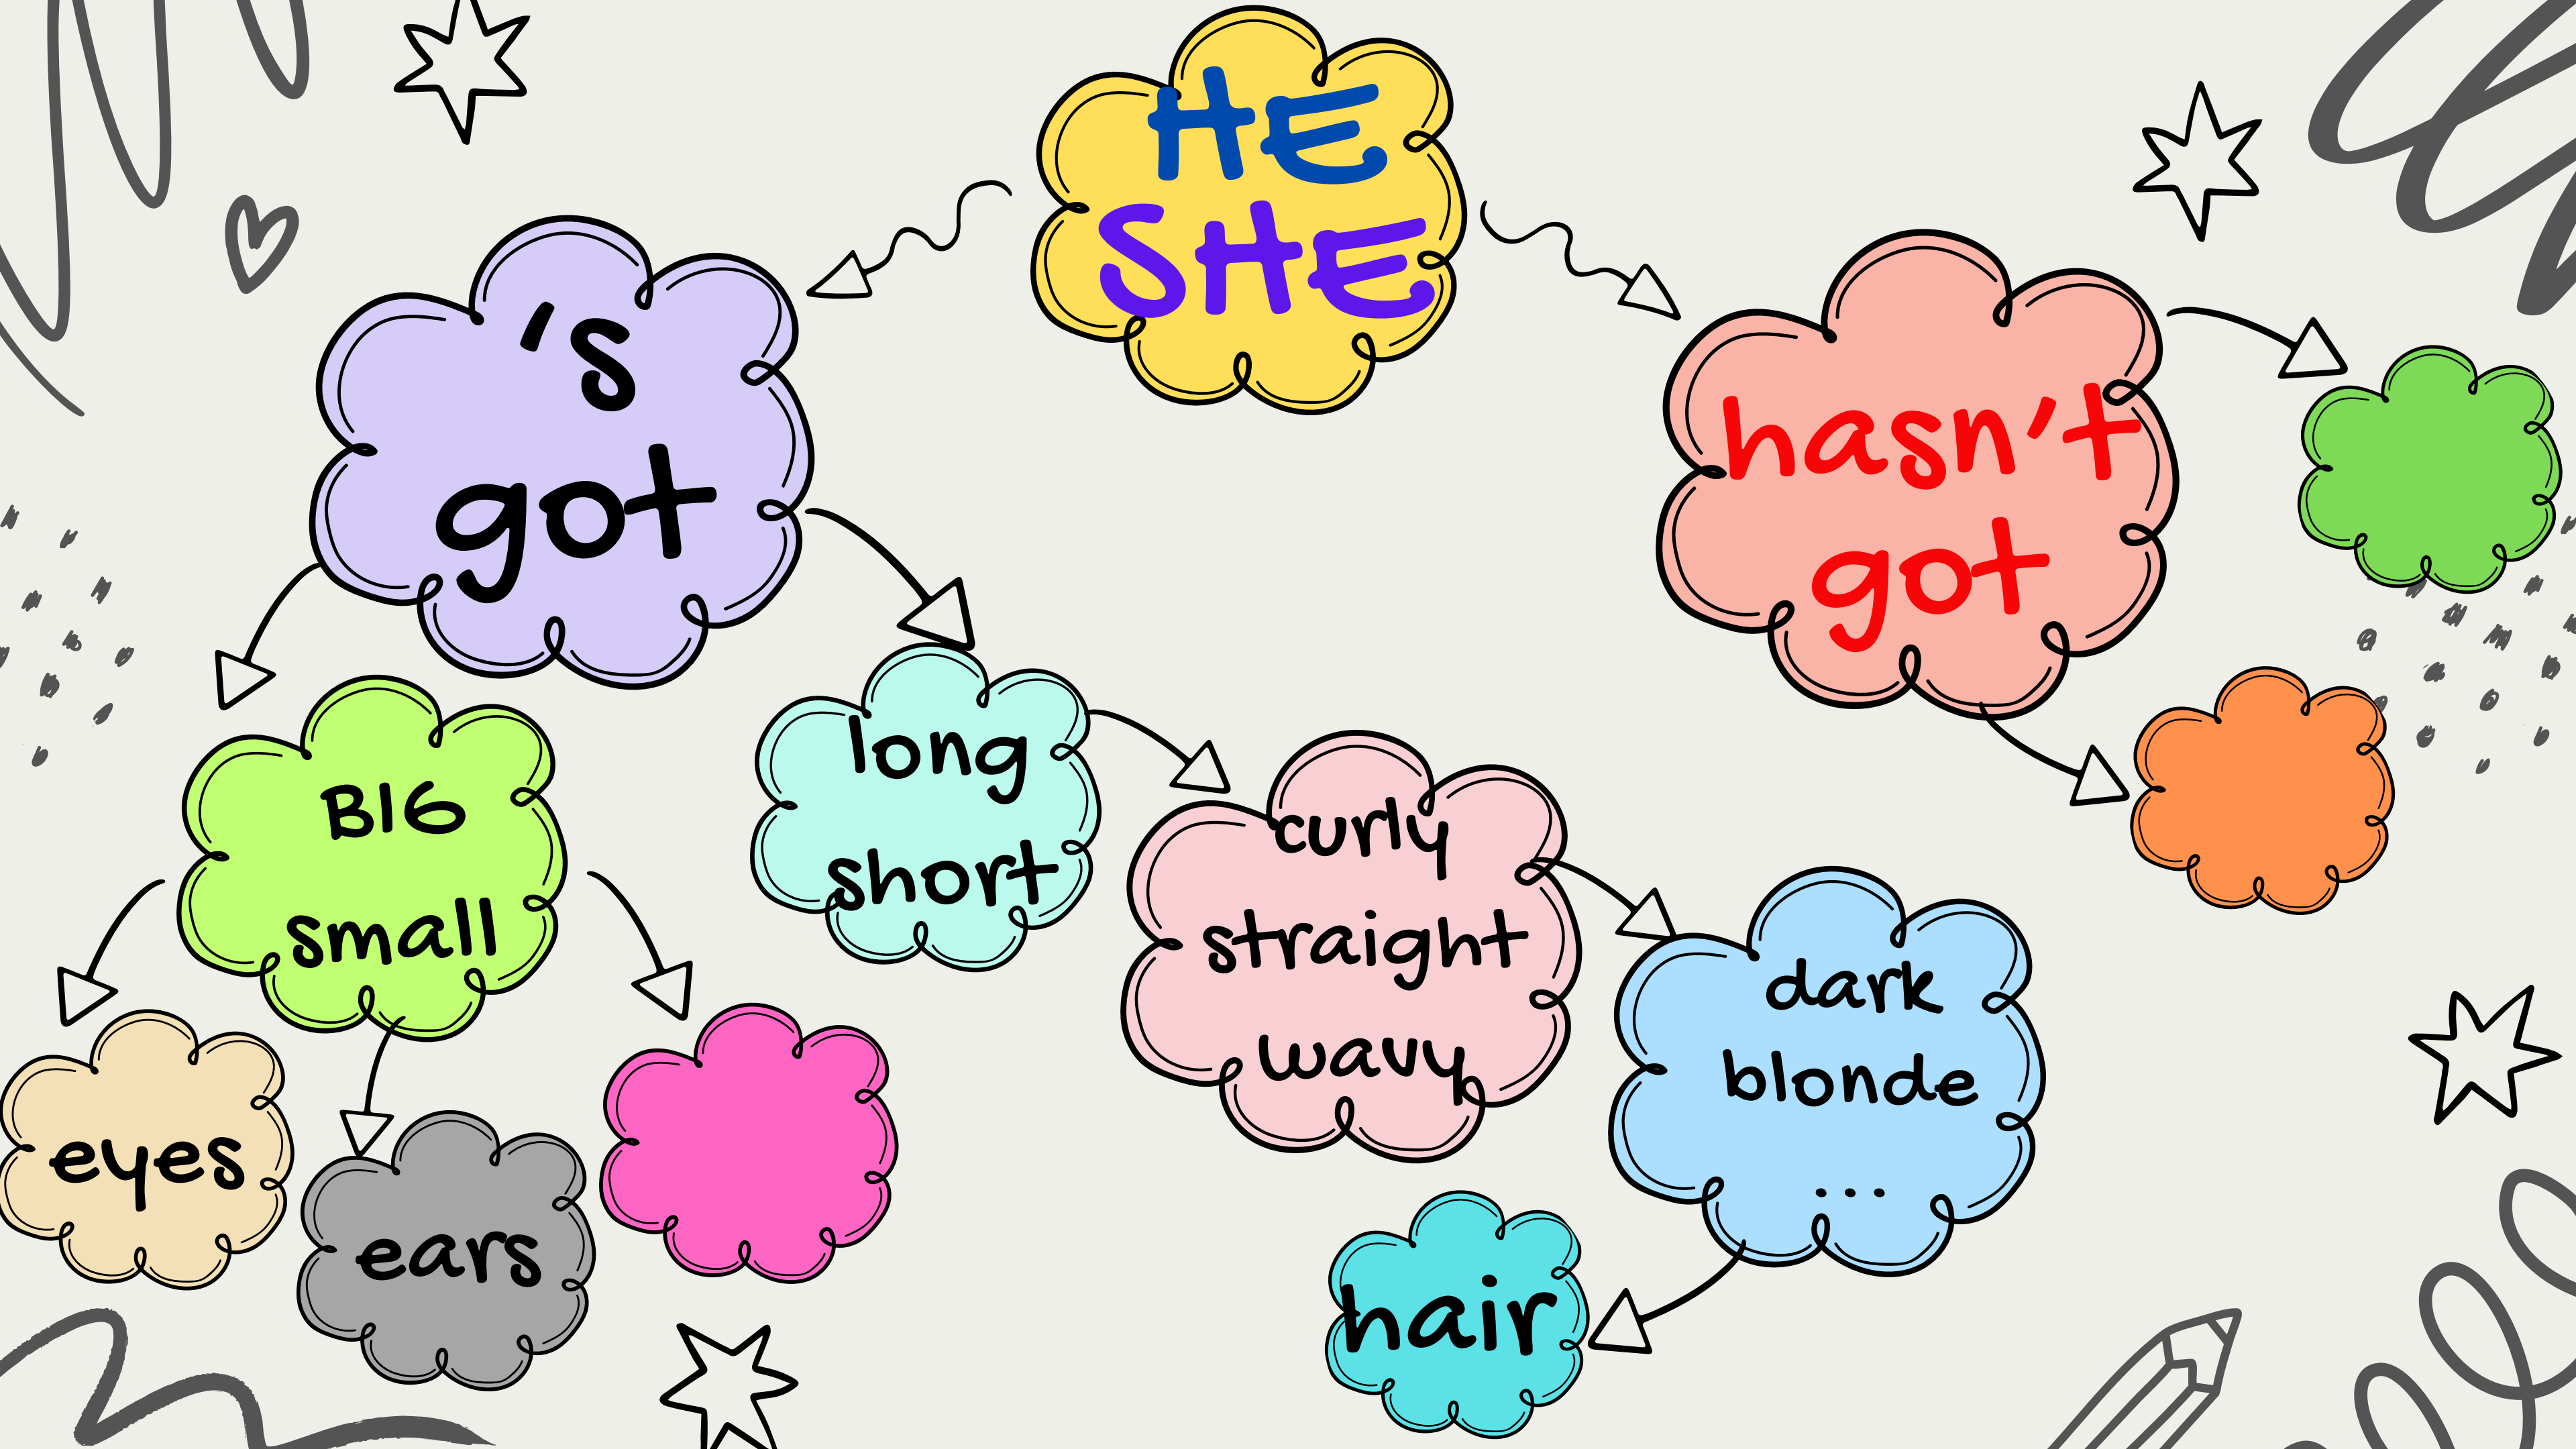 HE
SHE
's
got
hasn't
got
BIG
small
long
short
curly
straight
wavy
dark
blonde
...
eyes
ears
hair